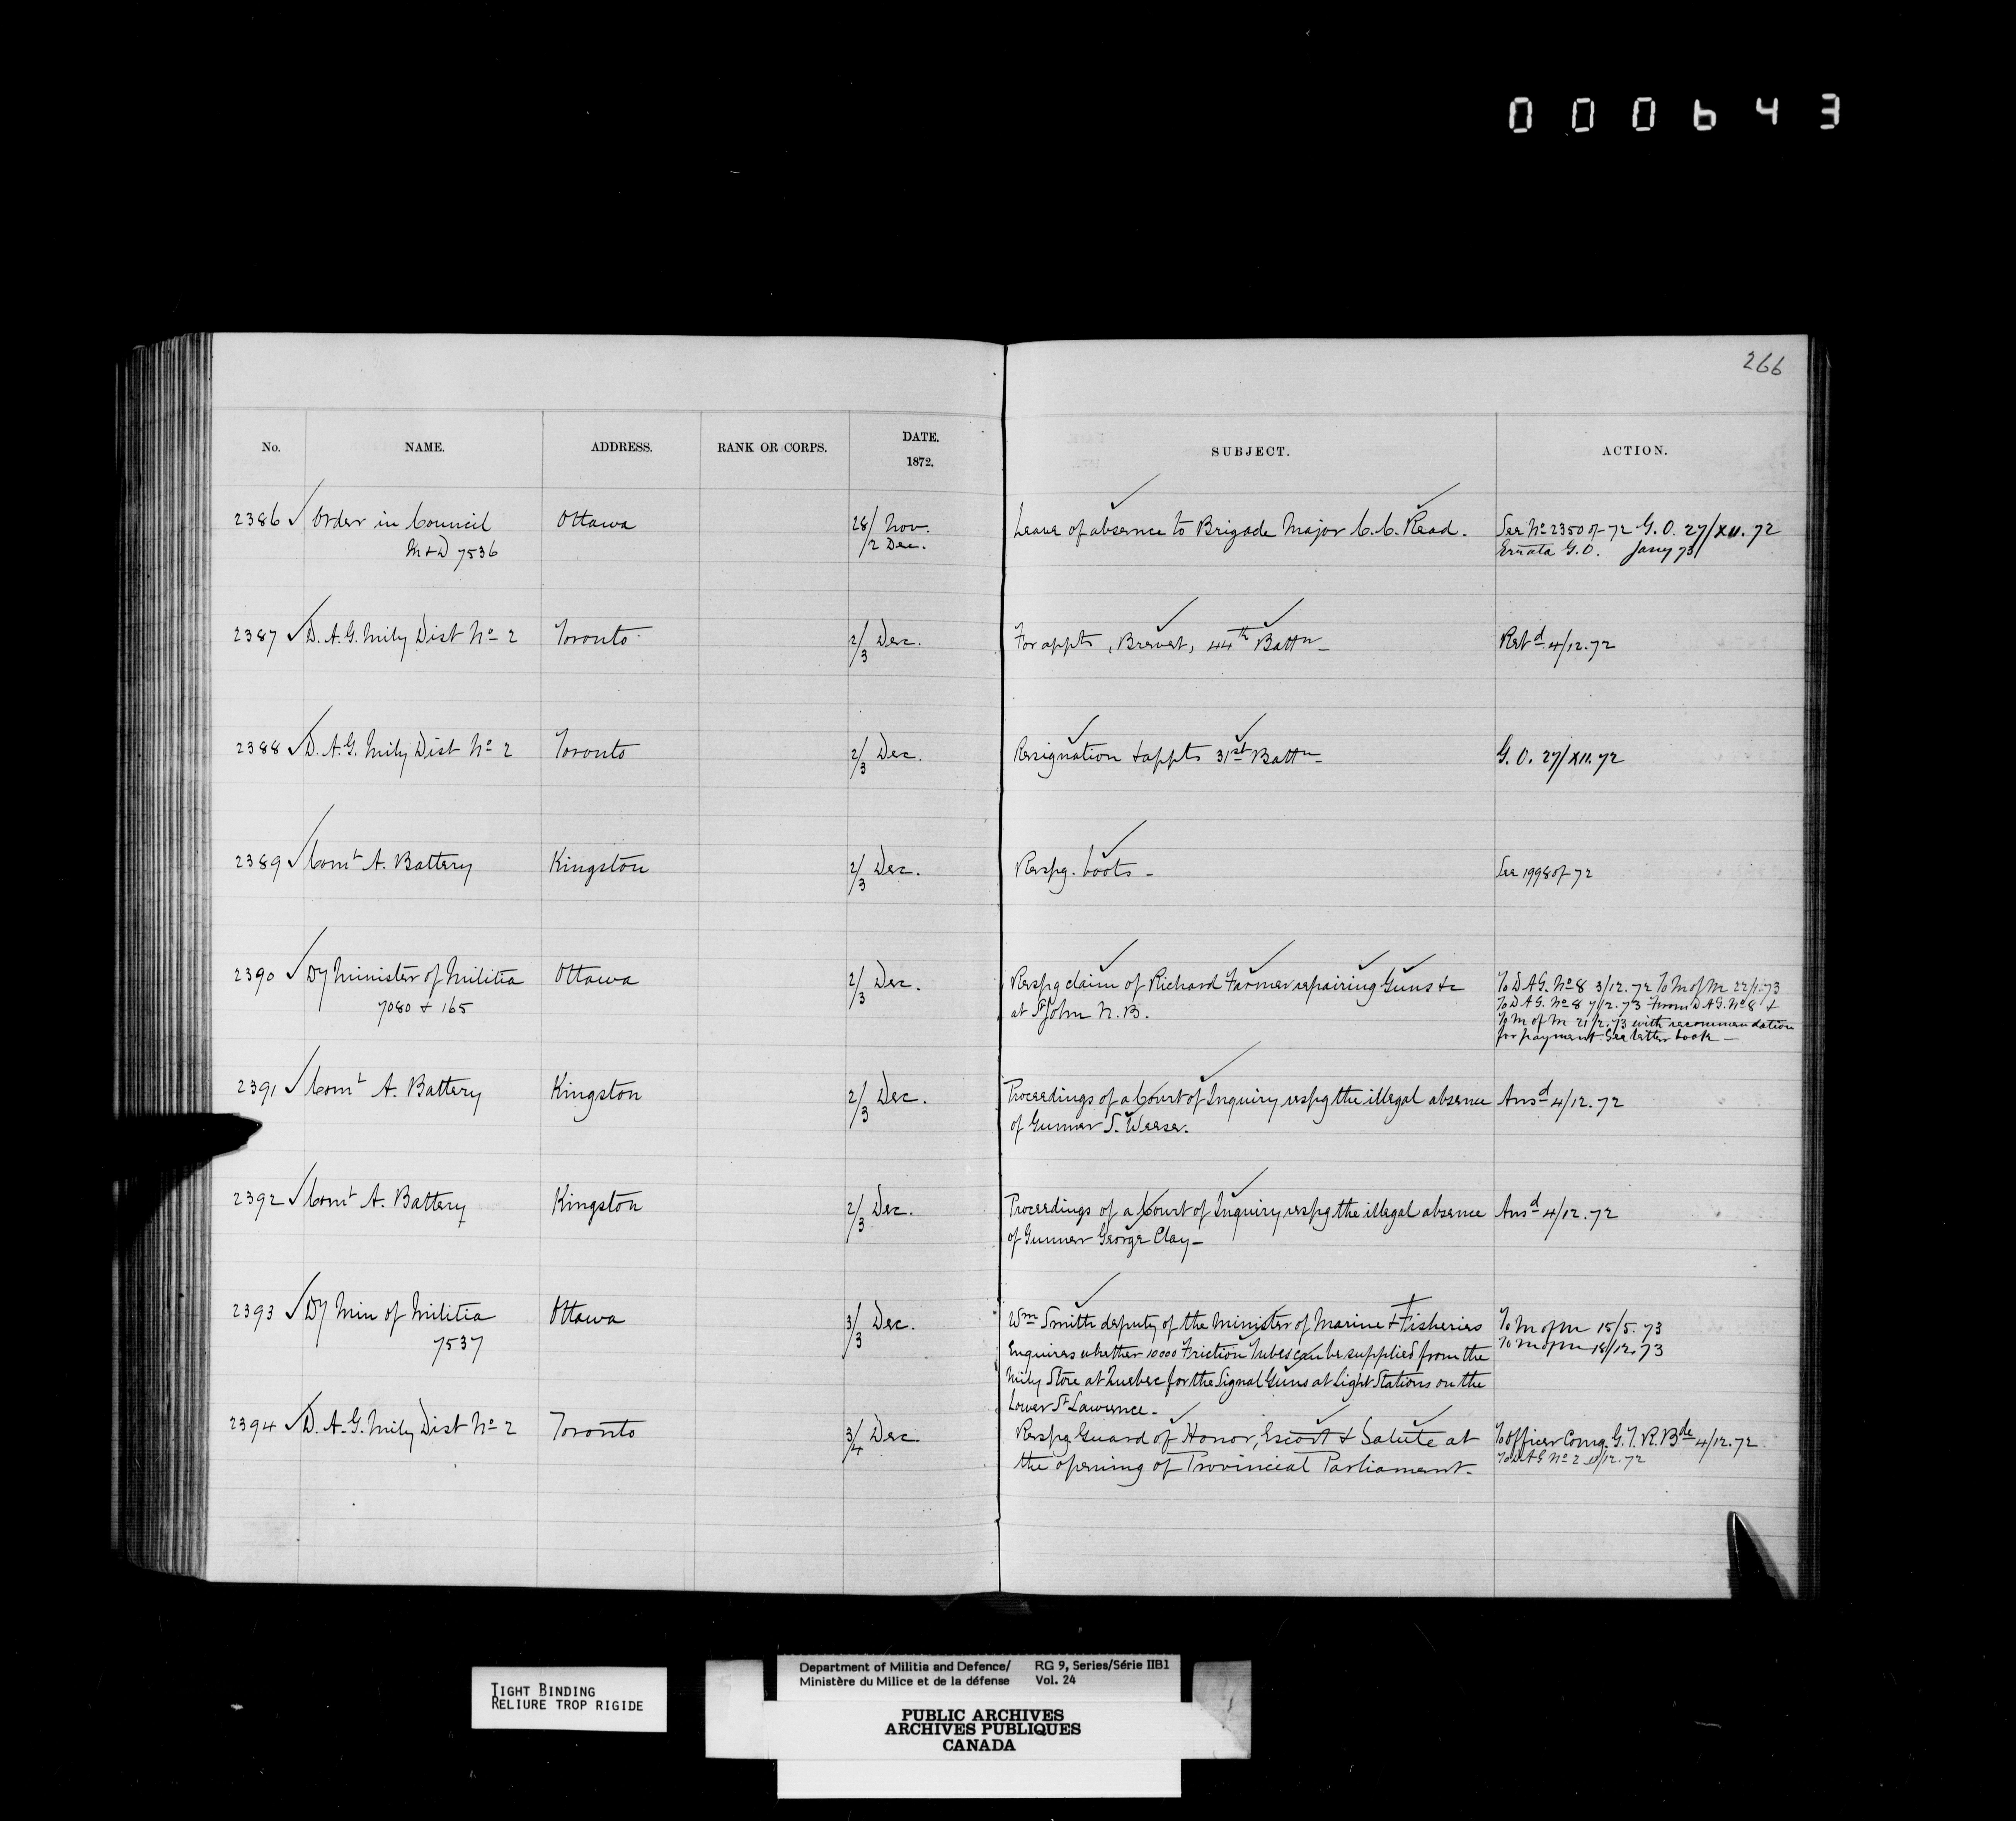 000643
266
No. NAME. ADDRESS. RANK OR CORPS. DATE. 1872. SUBJECT. ACTION.
2386 ✓ Order in Council Ottawa 28/ Nov. Leave of absence to Brigade Major C. C. Read. See No 2350 of 72 G. O. 27/XII. 72
M & D 7536 /2 Dec. Errata G. O. Jany 73
2387 ✓ D. A. G. Mily Dist No 2 Toronto 2/3 Dec. For appts, Brevet, 44th Battn Retd 4/12.72
2388 ✓ D. A. G. Mily Dist No 2 Toronto 2/3 Dec. Resignation & appts 31st Battn G. O. 27/XII. 72
2389 ✓ Comt A. Battery Kingston 2/3 Dec. Respg. boots - See 1998 of 72
2390 ✓ Dy Minister of Militia Ottawa 2/3 Dec. Respg claim of Richard Farmer repairing Guns &c To D A G. No 8 3/12. 72 To M of M 22/1.73
7080 & 165 at St John N. B. To D A G. No 8 7/2. 73 From D A G. No 8 &
To M of M 21/2. 73 with recommendation
for payment. See letter book -
2391 ✓ Comt A. Battery Kingston 2/3 Dec. Proceedings of a Court of Inquiry respg the illegal absence Ansd 4/12. 72
of Gunner S. Weese.
2392 ✓ Comt A. Battery Kingston 2/3 Dec. Proceedings of a Court of Inquiry respg the illegal absence Ansd 4/12. 72
of Gunner George Clay -
2393 ✓ Dy Min of Militia Ottawa 3/3 Dec. Wm Smith deputy of the Minister of Marine & Fisheries To M of M 15/5. 73
7537 Enquires whether 10000 Friction Tubes can be supplied from the To M of M 18/12. 73
Mily Store at Quebec for the Signal Guns at Light Stations on the
Lower St Lawrence.
2394 ✓ D. A. G. Mily Dist No 2 Toronto 3/4 Dec. Respg Guard of Honor, Escort & Salute at To Officer Comg. G. T. R. Bde 4/12. 72
the opening of Provincial Parliament. To D A G No 2 /12. 72
TIGHT BINDING
RELIURE TROP RIGIDE
Department of Militia and Defence/ RG 9, Series/Série IIB1
Ministère du Milice et de la défense Vol. 24
PUBLIC ARCHIVES
ARCHIVES PUBLIQUES
CANADA